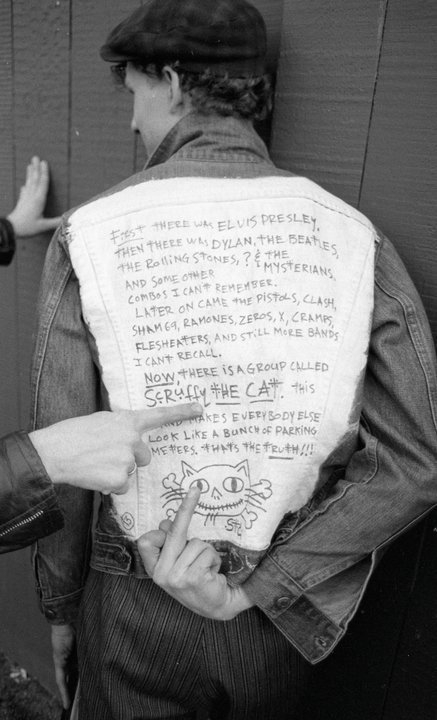 FIRST THERE WAS ELVIS PRESLEY,
THEN THERE WAS DYLAN, THE BEATLES,
THE ROLLING STONES, ? & THE
MYSTERIANS,
AND SOME OTHER
COMBOS I CAN'T REMEMBER.
LATER ON CAME THE PISTOLS, CLASH,
SHAM 69, RAMONES, ZEROS, X, CRAMPS,
FLESHEATERS, AND STILL MORE BANDS
I CAN'T RECALL.
NOW, THERE IS A GROUP CALLED
SCRUFFY THE CAT. THIS
AND MAKES EVERYBODY ELSE
LOOK LIKE A BUNCH OF PARKING
METERS. THAT'S THE TRUTH!!!